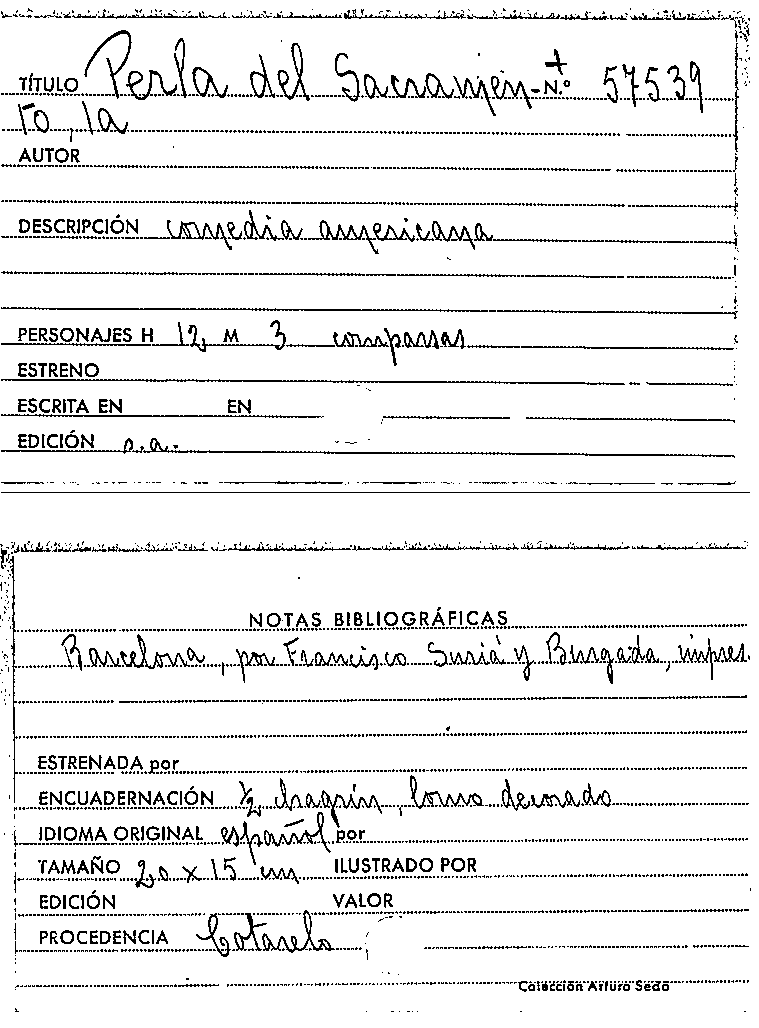 TÍTULO Perla del Sacramen- N.º 57539
to, la
AUTOR
DESCRIPCIÓN comedia americana
PERSONAJES H 12, M 3 comparsas
ESTRENO
ESCRITA EN EN
EDICIÓN s.a.
NOTAS BIBLIOGRÁFICAS
Barcelona, por Francisco Suriá y Burgada, impres.
ESTRENADA por
ENCUADERNACIÓN ½ chagrín, lomo decorado
IDIOMA ORIGINAL español por
TAMAÑO 20 x 15 cm ILUSTRADO POR
EDICIÓN VALOR
PROCEDENCIA Cotarelo
Colección Arturo Sedó